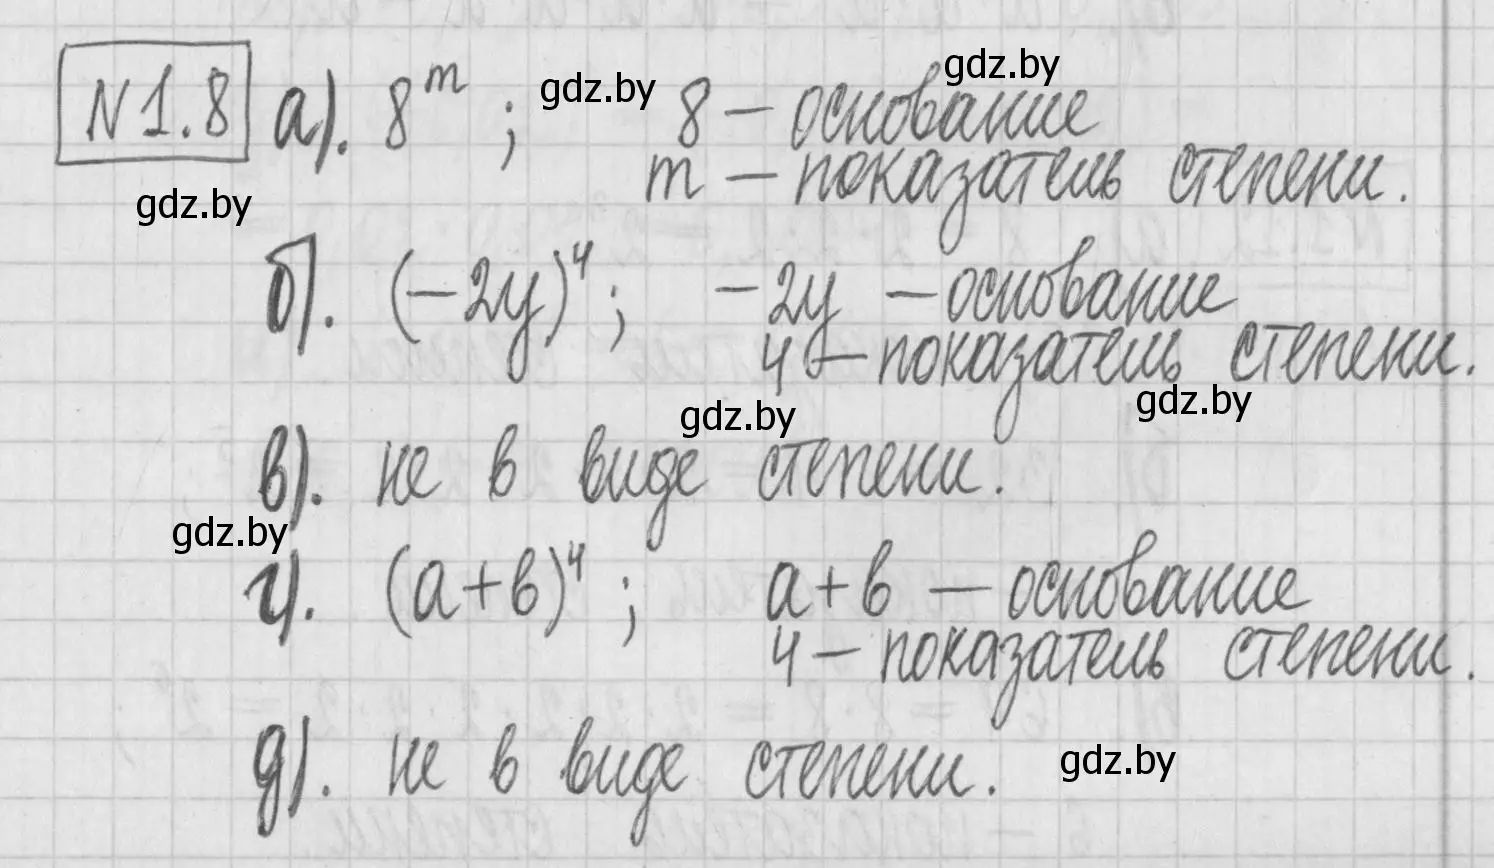 N1.8 а). 8^m ; 8 – основание
m – показатель степени.
б). (-2y)^4 ; -2y – основание
4 – показатель степени.
в). не в виде степени.
г). (a+b)^4 ; a+b – основание
4 – показатель степени.
д). не в виде степени.
gdz.by
gdz.by
gdz.by
gdz.by
gdz.by
gdz.by
gdz.by